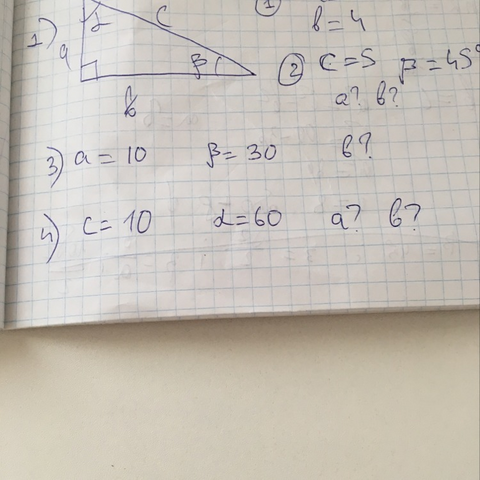 ①
1) a α c β b
b = 4
② c = 5 β = 45°
a? b?
3) a = 10 β = 30 b?
4) c = 10 α = 60 a? b?